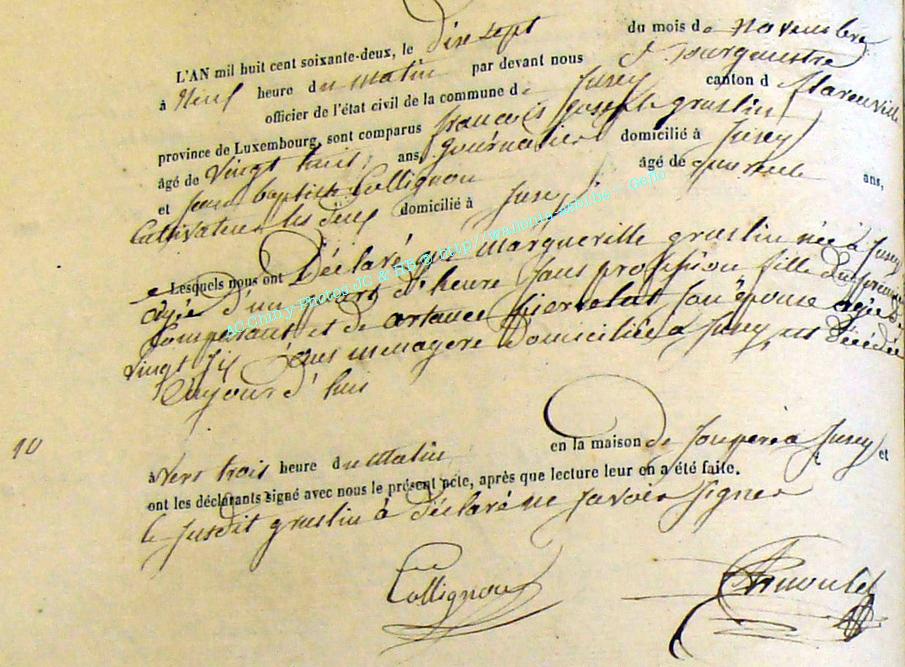 L'AN mil huit cent soixante-deux, le dix sept du mois de Novembre
à Neuf heure du matin par devant nous Bourgmestre
officier de l'état civil de la commune de Juzey canton d
province de Luxembourg, sont comparus francois joseph graslin
âgé de Vingt huit ans journalier domicilié à Juzey
et jean baptiste Collignon âgé de quarante ans,
Cultivateur les deux domicilié à Juzey
Lesquels nous ont Déclaré que Margueritte graslin née à Juzey
agée d'un quart d'heure sans profession fille du premier
Comparant et de son épouse agée de
vingt six ans menagere domiciliée a Juzey est décédée
aujourd'hui
10
à vers trois heure du Matin en la maison de son père à Juzey et
ont les déclarants signé avec nous le présent acte, après que lecture leur en a été faite.
le susdit graslin à déclaré ne savoir signer
Collignon
AC Chiny Photos JC & RB @ http//wallonia-asbl.be - Gefio